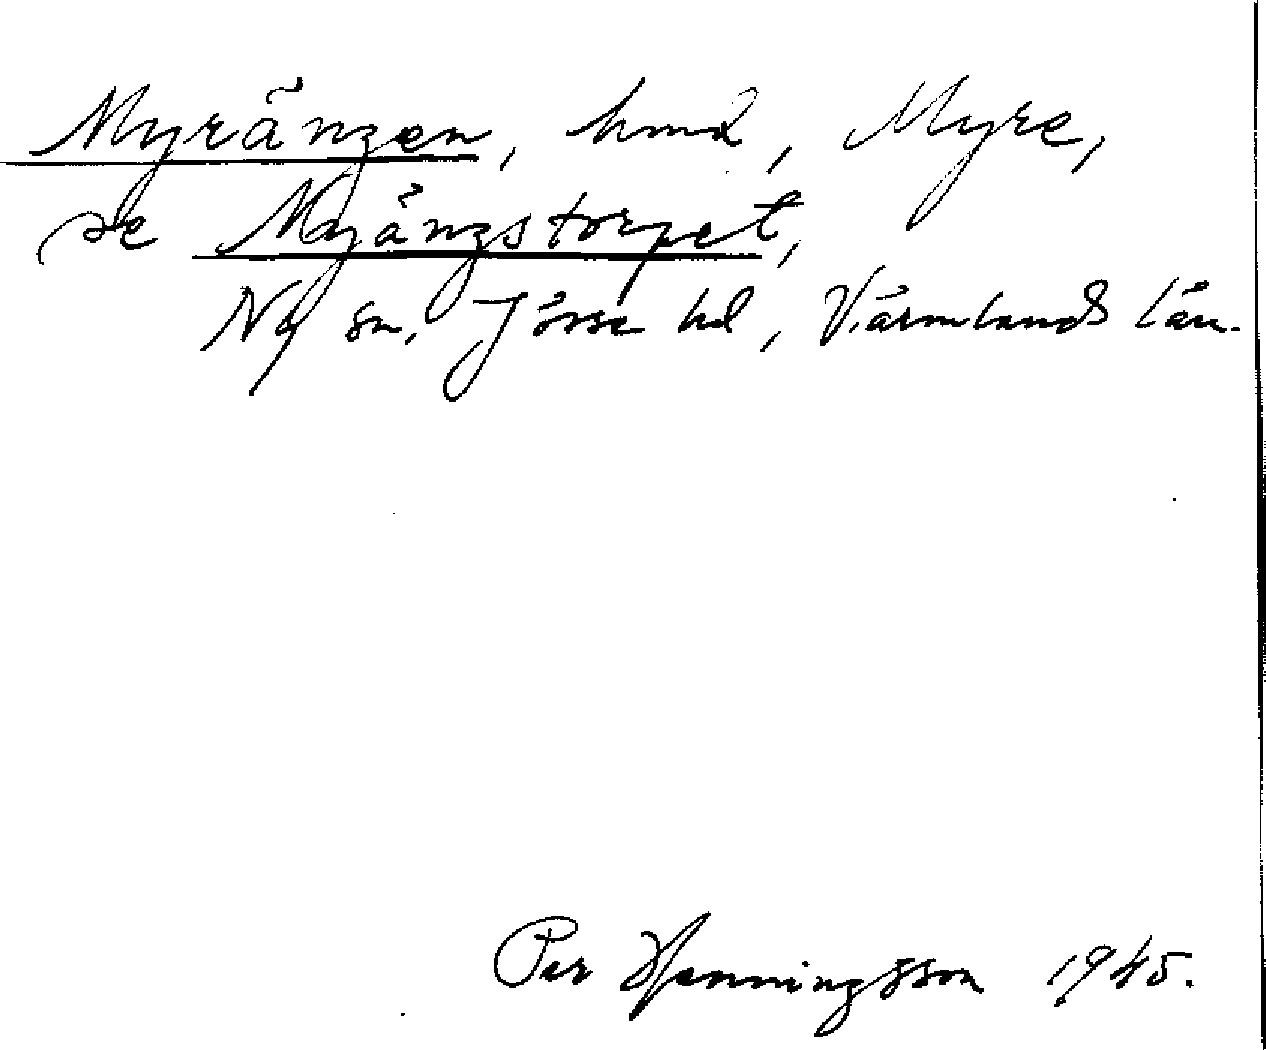 Myrängen, hmd, Myre,
se Myängstorpet,
Ny sn, Jösse hd, Värmlands län.
Per Henningsson 1945.